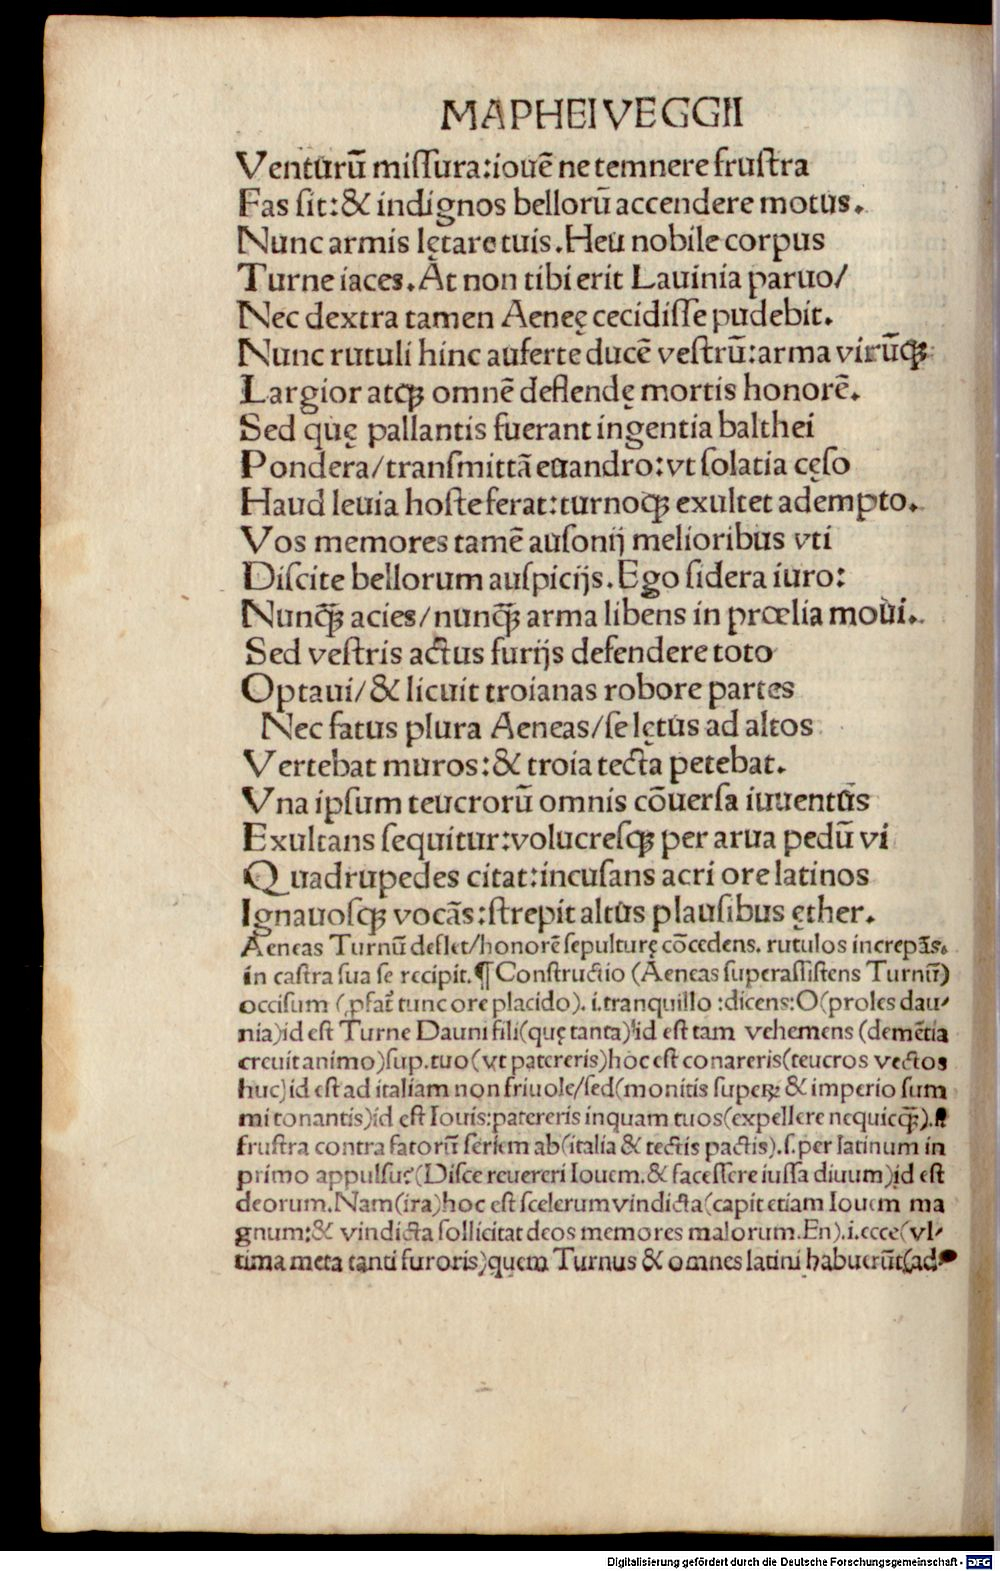 MAPHEI VEGGII
Venturū miſſura:iouē ne temnere fruſtra
Fas ſit:& indignos bellorū accendere motus.
Nunc armis lętare tuis.Heu nobile corpus
Turne iaces.At non tibi erit Lauinia paruo/
Nec dextra tamen Aeneę cecidiſſe pudebit.
Nunc rutuli hinc auferte ducē veſtrū:arma virūqꝫ
Largior atqꝫ omnē deflendę mortis honorē.
Sed quę pallantis fuerant ingentia balthei
Pondera/tranſmittā euandro:vt ſolatia cęſo
Haud leuia hoſte ferat:turnoqꝫ exultet adempto.
Vos memores tamē auſonij melioribus vti
Diſcite bellorum auſpicijs.Ego ſidera iuro:
Nunqꝫ̄ acies/nunqꝫ̄ arma libens in prœlia moui.
Sed veſtris actus furijs defendere toto
Optaui/& licuit troianas robore partes
Nec fatus plura Aeneas/ſe lętus ad altos
Vertebat muros:& troia tecta petebat.
Vna ipſum teucrorū omnis cōuerſa iuuentus
Exultans ſequitur:volucreſqꝫ per arua pedū vi
Quadrupedes citat:incuſans acri ore latinos
Ignauoſqꝫ vocās:ſtrepit altus plauſibus ęther.
Aeneas Turnū deflet/honorē ſepulturę cōcedens. rutulos increpās.
in caſtra ſua ſe recipit.¶ Conſtructio (Aeneas ſuperaſſiſtens Turnū)
occiſum (ꝓfat̄ tunc ore placido). i.tranquillo :dicens:O(proles dau-
nia)id eſt Turne Dauni fili(quę tanta)id eſt tam vehemens (demētia
creuit animo)ſup.tuo(vt patereris)hoc eſt conareris(teucros vectos
huc)id eſt ad italiam non friuole/ſed(monitis ſuperꝝ & imperio ſum
mi tonantis)id eſt Iouis:patereris inquam tuos(expellere nequicqꝫ̄).
fruſtra contra fatorū ſeriem ab(italia & tectis pactis).ſ.per latinum in
primo appulſu?(Diſce reuereri Iouem.& faceſſere iuſſa diuum)id eſt
deorum.Nam(ira)hoc eſt ſcelerum vindicta(capit etiam Iouem ma
gnum:& vindicta ſollicitat deos memores malorum.En).i.ecce(vl-
tima meta tanti furoris)quem Turnus & omnes latini habuerūt(ad-
Digitalisierung gefördert durch die Deutsche Forschungsgemeinschaft - DFG